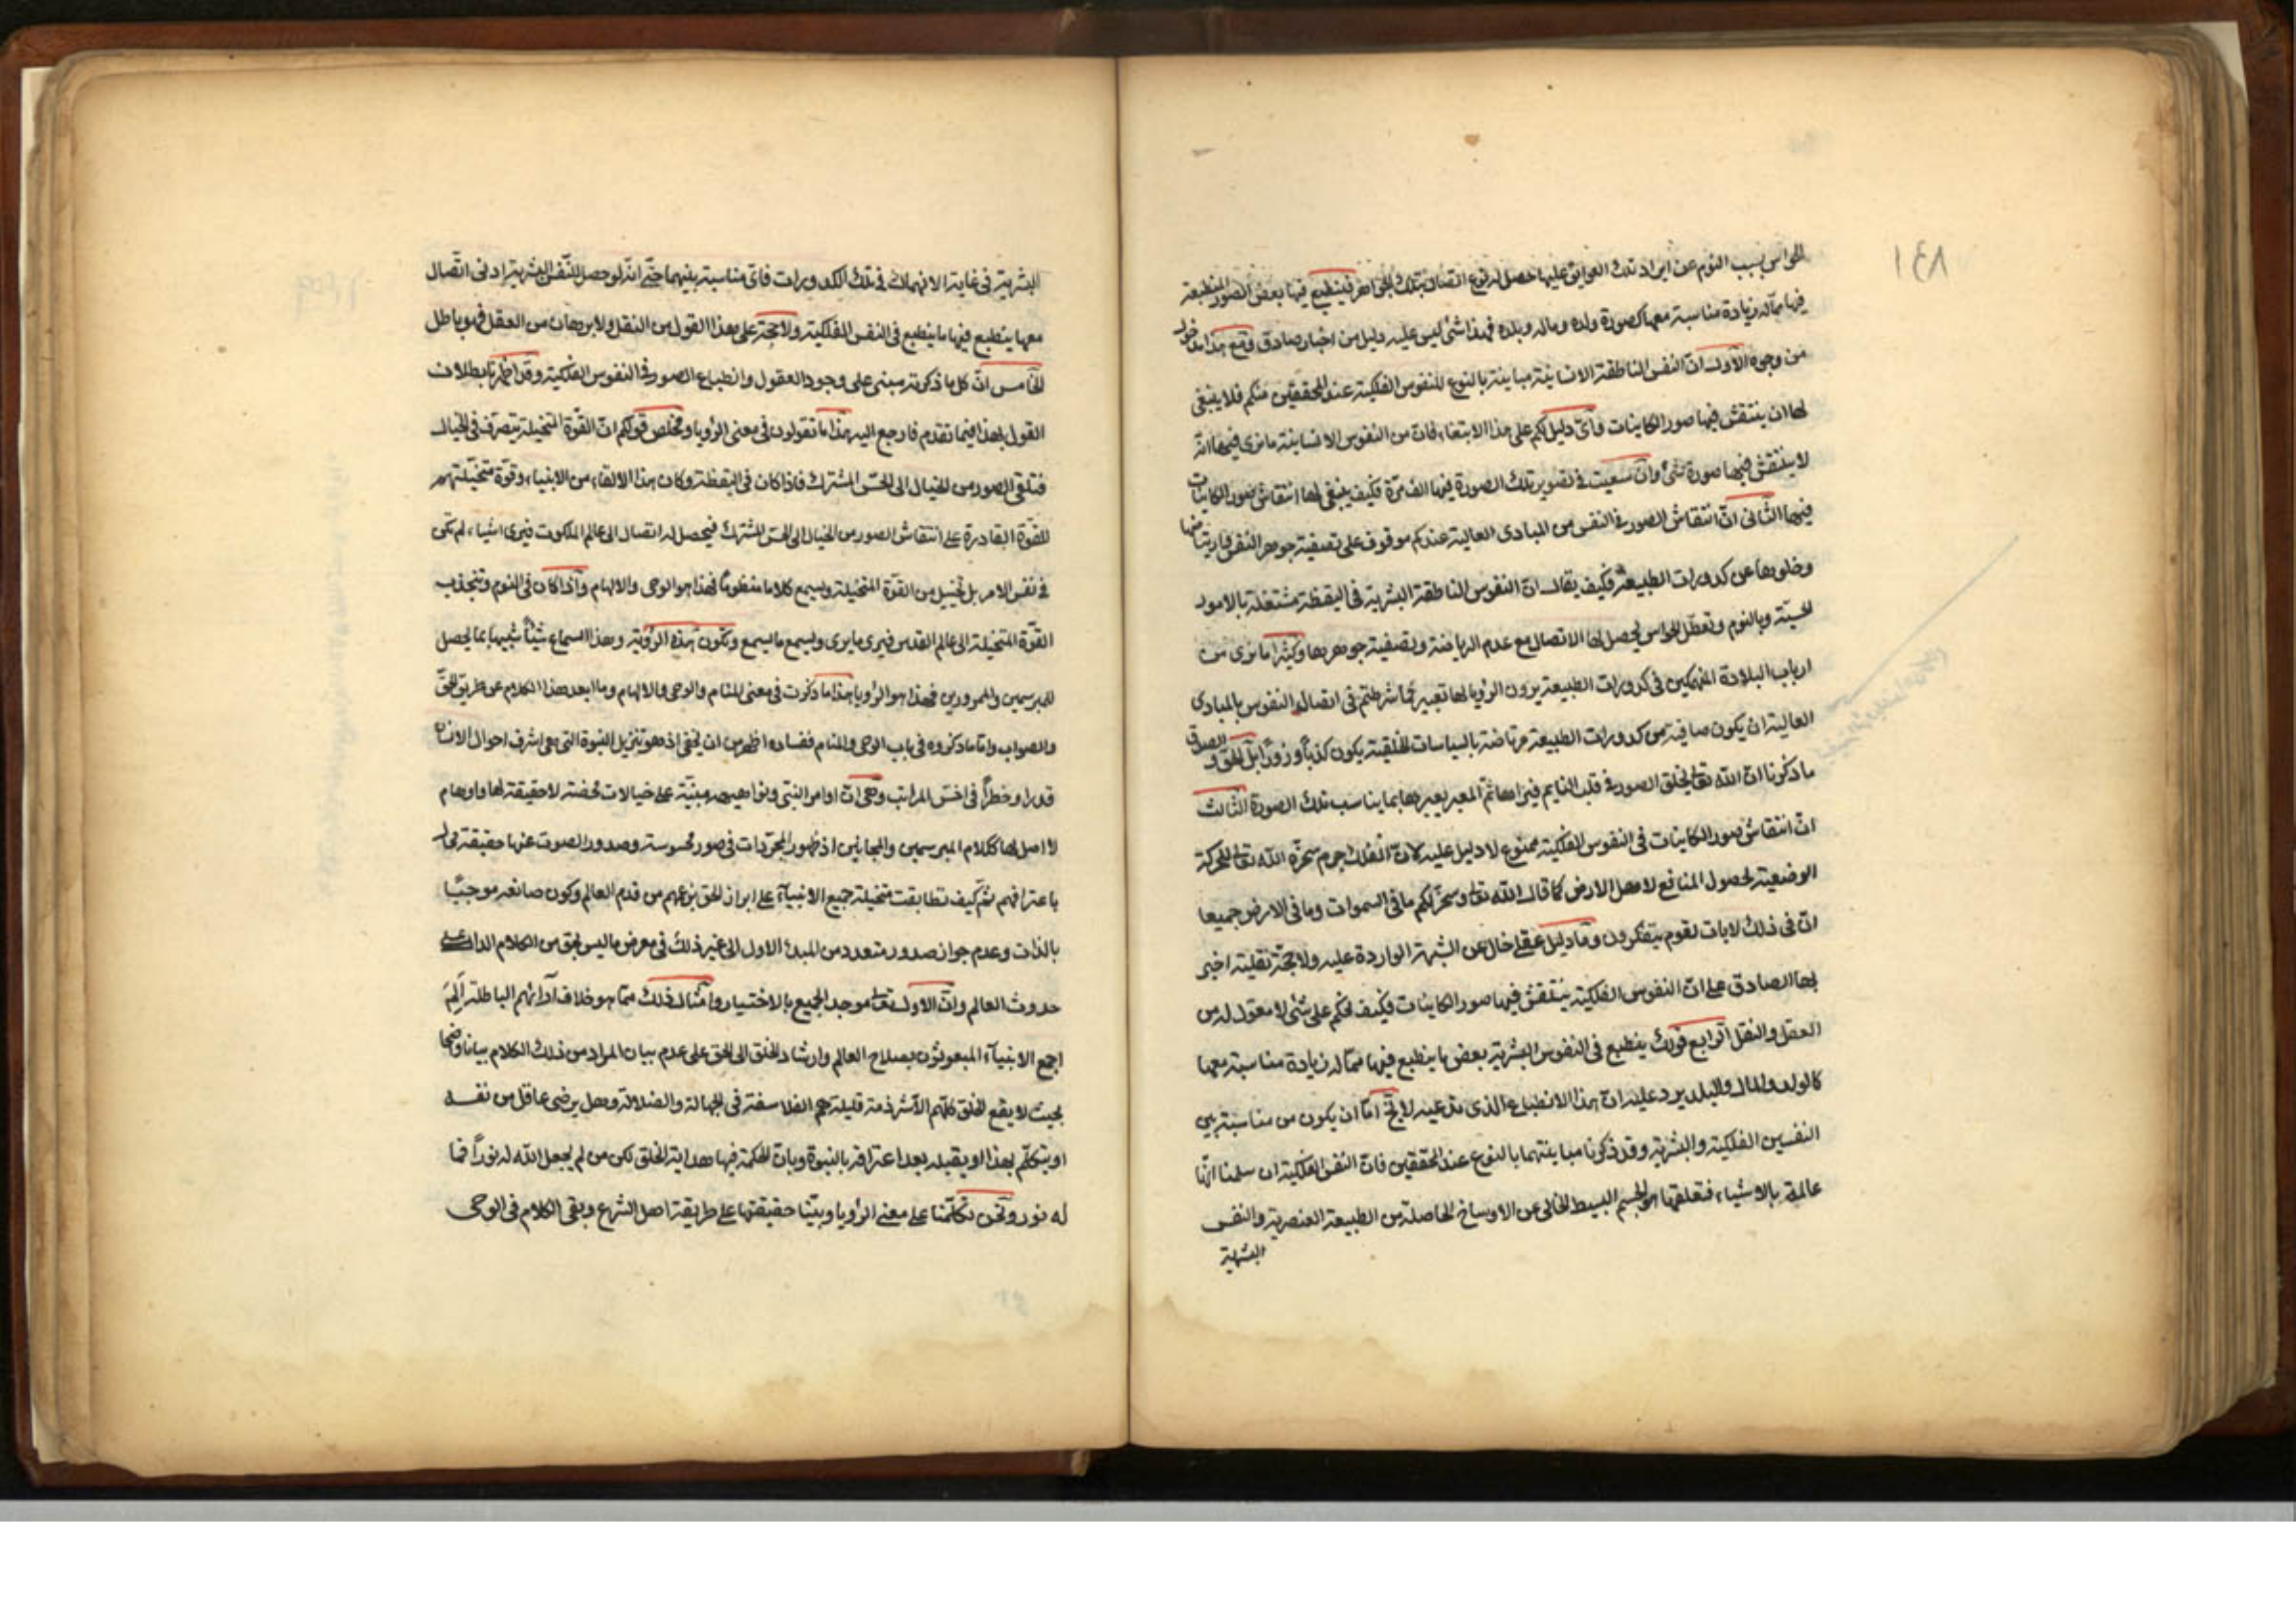 ١٤٨
الحواس بسبب النوم عن ايراد تلك العوايق عليها حصل له نوع اتصال بتلك الجواهر فينطبع فيها بعض الصور المنطبعة
فيها مما له زيادة مناسبة معها كصورة ولده وماله وبلده فهذا شئ ليس عليه دليل من اخبار صادق ومع هذا مدخول
من وجوه الاول ان النفس الناطقة الانسانية مباينة بالنوع للنفوس الفلكية عند المحققين منكم فلا ينبغى
لها ان ينتقش فيها صور الكاينات فاى دليل لكم على هذا الابتغاء فان من النفوس الانسانية ما نرى فيها انه
لا ينتقش فيها صورة شئ وان سعيت فى تصوير تلك الصورة فيها الف مرة فكيف ينبغى لها انتقاش صور الكاينات
فيها الثانى ان انتقاش الصور فى النفس من المبادى العالية عندكم موقوف على تصفية جوهر النفس بارتياضها
وخلوها عن كدورات الطبيعة فكيف يقال ان النفوس الناطقة البشرية فى اليقظة مشتغلة بالامور
الحسية وبالنوم وتعطل الحواس يحصل لها الاتصال مع عدم الرياضة وتصفية جوهرها وكثيرا ما نرى من
ارباب البلادة المنهمكين فى كدورات الطبيعة يرون الرؤيا لها تعبير فما شرطتم فى اتصال النفوس بالمبادى
العالية ان يكون صافية من كدورات الطبيعة مرتاضة بالسياسات الخلقية يكون كذبا وزورا بل الحق والصدق
ما ذكرنا ان الله تعالى يخلق الصور فى قلب النايم فيراها ثم المعبر يعبرها بما يناسب تلك الصورة الثالث
ان انتقاش صور الكاينات فى النفوس الفلكية ممنوع لا دليل عليه لان الفلك جرم سخره الله تعالى للحركة
الوضعية لحصول المنافع لاهل الارض كما قال الله تعالى وسخر لكم ما فى السموات وما فى الارض جميعا
ان فى ذلك لايات لقوم يتفكرون وما دليل عقلى خال عن الشبهة الواردة عليه ولا حجة نقلية اخبر
بها الصادق على ان النفوس الفلكية ينتقش فيها صور الكاينات فكيف نحكم على شئ لا معقول له من
العقل والنقل الرابع قولك ينطبع فى النفوس البشرية بعض ما ينطبع فيها مما له زيادة مناسبة معها
كالولد والمال والبلد يرد عليه ان هذا الانطباع الذى تدعيه لا يخ اما ان يكون من مناسبة بين
النفسين الفلكية والبشرية وقد ذكرنا مباينتهما بالنوع عند المحققين فان النفس الفلكية ان سلمنا انها
عالمة بالاشياء فتعلقها هو الجسم البسيط الخالى عن الاوساخ الحاصلة من الطبيعة العنصرية والنفس
البشرية
البشرية فى غاية الانهماك فى تلك الكدورات فاى مناسبة بينهما حتى انه لو حصل للنفس البشرية ادنى اتصال
معها ينطبع فيها ما ينطبع فى النفس الفلكية ولا حجة على هذا القول من النقل ولا برهان من العقل فهو باطل
الخامس ان كل ما ذكرته مبنى على وجود العقول وانطباع الصور فى النفوس الفلكية وقد اظهرنا بطلان
القول بهذا فيما تقدم فارجع اليه هذا ما تقولون فى معنى الرؤيا ومخلص قولكم ان القوة المتخيلة يتصرف فى الخيال
فتلقى الصور من الخيال الى الحس المشترك فاذا كان فى اليقظة وكان هذا الالقاء من الانبياء وقوة متخيلتهم
للقوة القادرة على انتقاش الصور من الخيال الى الحس المشترك فيحصل له اتصال الى عالم الملكوت فيرى اشياء لم تكن
فى نفس الامر بل تخييل من القوة المتخيلة ويسمع كلاما منظوما فهذا هو الوحى والالهام واذا كان فى النوم وتنجذب
القوة المتخيلة الى عالم القدس فيرى ما يرى ويسمع ما يسمع وتكون هذه الرؤية وهذا السماع شيئا شبيها بما يحصل
للمبرسمين والممرورين فهذا هو الرؤيا هذا ما ذكرت فى معنى المنام والوحى والالهام وما ابعد هذا الكلام عن طريق الحق
والصواب واما ما ذكروه فى باب الوحى والمنام ففساده اظهر من ان يخفى اذ هو تنزيل النبوة التى هى اشرف احوال الانسان
قدرا وخطرا فى اخس المراتب وهى ان اوامر النبى ونواهيه مبنية على خيالات محضة لا حقيقة لها واوهام
لا اصل لها ككلام المبرسمين والمجانين اذ ظهور المجردات فى صور محسوسة وصدور الصوت عنها حقيقة محال
باعترافهم ثم كيف تطابقت متخيلة جميع الانبياء على ابراز الحق بزعمهم من قدم العالم وكون صانعه موجبا
بالذات وعدم جواز صدور متعدد من المبدأ الاول الى غير ذلك فى معرض ما ليس بحق من الكلام الدال على
حدوث العالم وان الاول تعالى موجد الجميع بالاختيار وامثال ذلك مما هو خلاف آرائهم الباطلة الم
اجمع الانبياء المبعوثون بصلاح العالم وارشاد الخلق الى الحق على عدم بيان المراد من ذلك الكلام بيانا واضحا
بحيث لا يقع الخلق كلهم الا شرذمة قليلة هم الفلاسفة فى الجهالة والضلالة وهل يرضى عاقل من نفسه
او يتكلم بهذا او يقبله بعد اعترافه بالنبوة وبان الحكمة فيها هداية الخلق لكن من لم يجعل الله له نورا فما
له نور ونحن تكلمنا على معنى الرؤيا وبينا حقيقتها على طريقة اهل الشرع وبقى الكلام فى الوحى